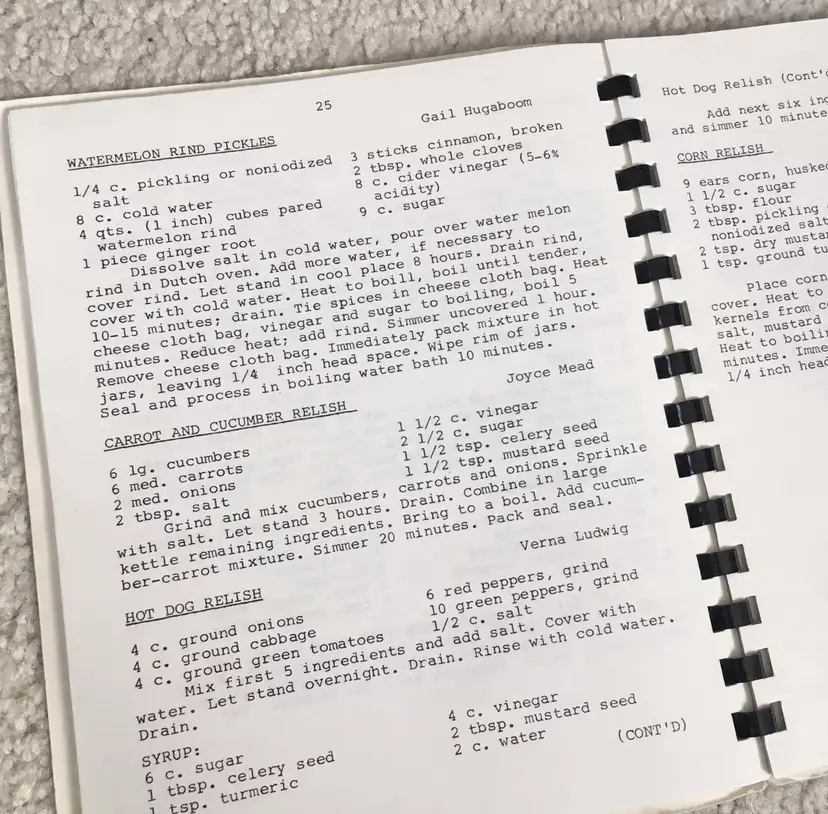 25
Gail Hugaboom
WATERMELON RIND PICKLES
1/4 c. pickling or noniodized
salt
8 c. cold water
4 qts. (1 inch) cubes pared
watermelon rind
1 piece ginger root
3 sticks cinnamon, broken
2 tbsp. whole cloves
8 c. cider vinegar (5-6%
acidity)
9 c. sugar
Dissolve salt in cold water, pour over water melon
rind in Dutch oven. Add more water, if necessary to
cover rind. Let stand in cool place 8 hours. Drain rind,
cover with cold water. Heat to boill, boil until tender,
10-15 minutes; drain. Tie spices in cheese cloth bag. Heat
cheese cloth bag, vinegar and sugar to boiling, boil 5
minutes. Reduce heat; add rind. Simmer uncovered 1 hour.
Remove cheese cloth bag. Immediately pack mixture in hot
jars, leaving 1/4 inch head space. Wipe rim of jars.
Seal and process in boiling water bath 10 minutes.
Joyce Mead
CARROT AND CUCUMBER RELISH
6 lg. cucumbers
6 med. carrots
2 med. onions
2 tbsp. salt
1 1/2 c. vinegar
2 1/2 c. sugar
1 1/2 tsp. celery seed
1 1/2 tsp. mustard seed
Grind and mix cucumbers, carrots and onions. Sprinkle
with salt. Let stand 3 hours. Drain. Combine in large
kettle remaining ingredients. Bring to a boil. Add cucum-
ber-carrot mixture. Simmer 20 minutes. Pack and seal.
Verna Ludwig
HOT DOG RELISH
4 c. ground onions
4 c. ground cabbage
4 c. ground green tomatoes
6 red peppers, grind
10 green peppers, grind
1/2 c. salt
Mix first 5 ingredients and add salt. Cover with
water. Let stand overnight. Drain. Rinse with cold water.
Drain.
SYRUP:
6 c. sugar
1 tbsp. celery seed
1 tsp. turmeric
4 c. vinegar
2 tbsp. mustard seed
2 c. water
(CONT'D)
Hot Dog Relish (Cont'd
Add next six
and simmer 10 minute
CORN RELISH
9 ears corn, huske
1 1/2 c. sugar
3 tbsp. flour
2 tbsp. pickling
noniodized salt
2 tsp. dry mustar
1 tsp. ground tu
Place corn
cover. Heat to
kernels from c
salt, mustard
Heat to boili
minutes. Imme
1/4 inch head